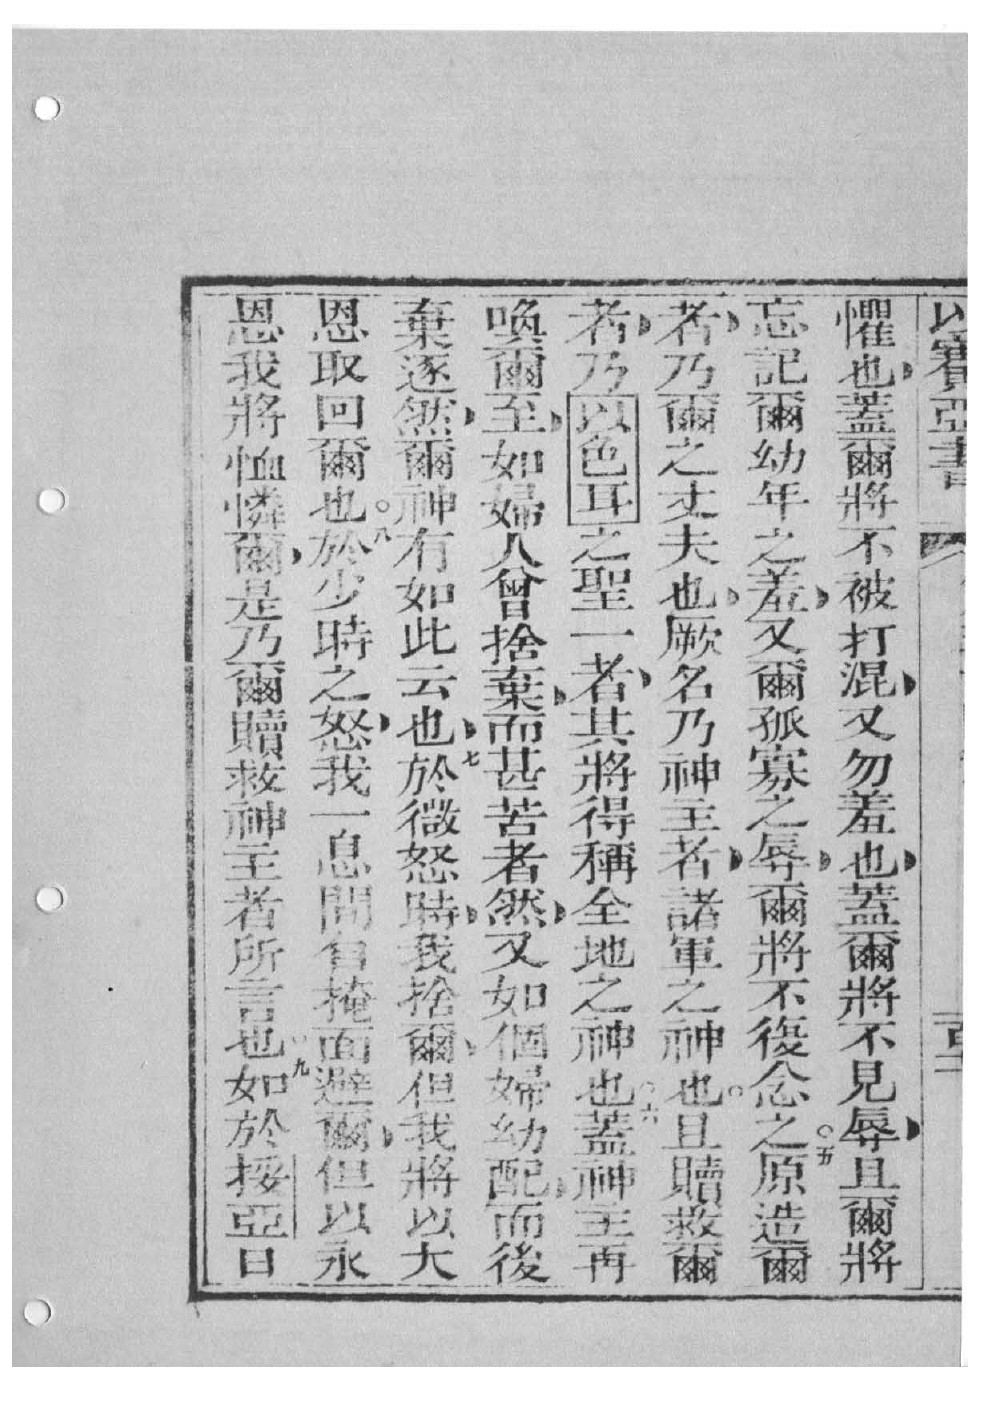 以賽亞書
懼也蓋爾將不被打混又勿羞也蓋爾將不見辱且爾將
忘記爾幼年之羞又爾孤寡之辱爾將不復念之○五原造爾
者乃爾之丈夫也厥名乃神主者諸軍之神也○且贖救爾
者乃以色耳之聖一者其將得稱全地之神也○六蓋神主再
喚爾至如婦人曾捨棄而甚苦者然又如個婦幼配而後
棄逐然爾神有如此云也七於微怒時我捨爾但我將以大
恩取回爾也○八於少時之怒我一息間曾掩面避爾但以永
恩我將恤憐爾是乃爾贖救神主者所言也○九如於挼亞日